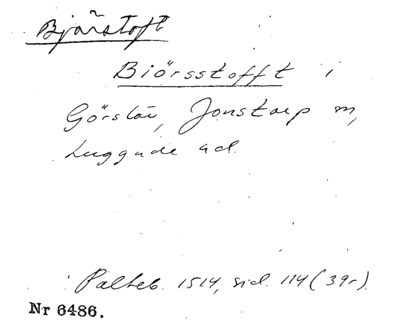 Bjärstoft
Biörsstofft i
Görslöv, Jonstorp m,
Luggude hd.
Palteb. 1514, sid. 114 (39r).
Nr 6486.